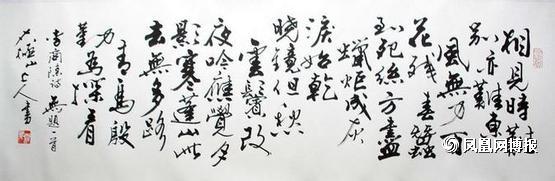 相見時難
別亦難東
風無力百
花残春蠶
到死絲方盡
蠟炬成灰
淚始乾
曉鏡但愁
雲鬢改
夜吟應覺月
影寒蓬山此
去無多路
青鳥殷
勤爲探看
李商隱詩無題一首
山人書
凤凰网博报